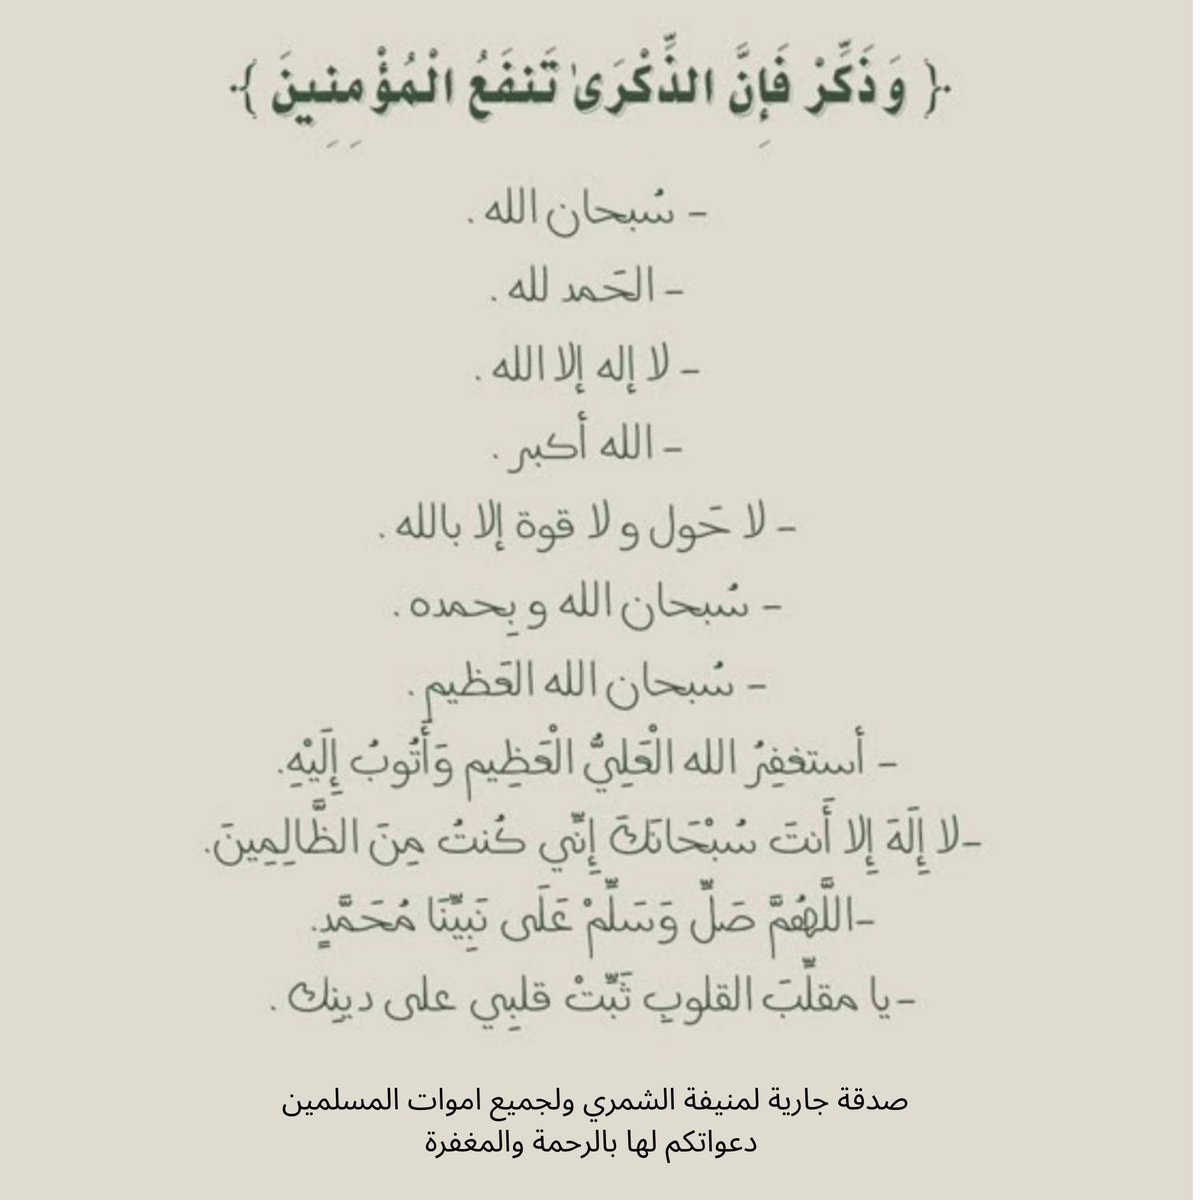 ﴿ وَذَكِّرْ فَإِنَّ الذِّكْرَىٰ تَنفَعُ الْمُؤْمِنِينَ ﴾
- سُبحان الله .
- الحَمد لله .
- لا إله إلا الله .
- الله أكبر .
- لا حَول و لا قوة إلا بالله .
- سُبحان الله و بِحمده .
- سُبحان الله العَظيم .
- أستغفِرُ الله الْعَلِيُّ الْعَظِيم وَأَتُوبُ إِلَيْهِ.
-لا إِلَهَ إِلا أَنتَ سُبْحَانَكَ إِنِّي كُنتُ مِنَ الظَّالِمِينَ.
-اللَّهُمَّ صَلِّ وَسَلِّمْ عَلَى نَبِيِّنَا مُحَمَّدٍ.
-يا مقلِّبَ القلوبِ ثَبِّتْ قلبِي على دينِك .
صدقة جارية لمنيفة الشمري ولجميع اموات المسلمين
دعواتكم لها بالرحمة والمغفرة